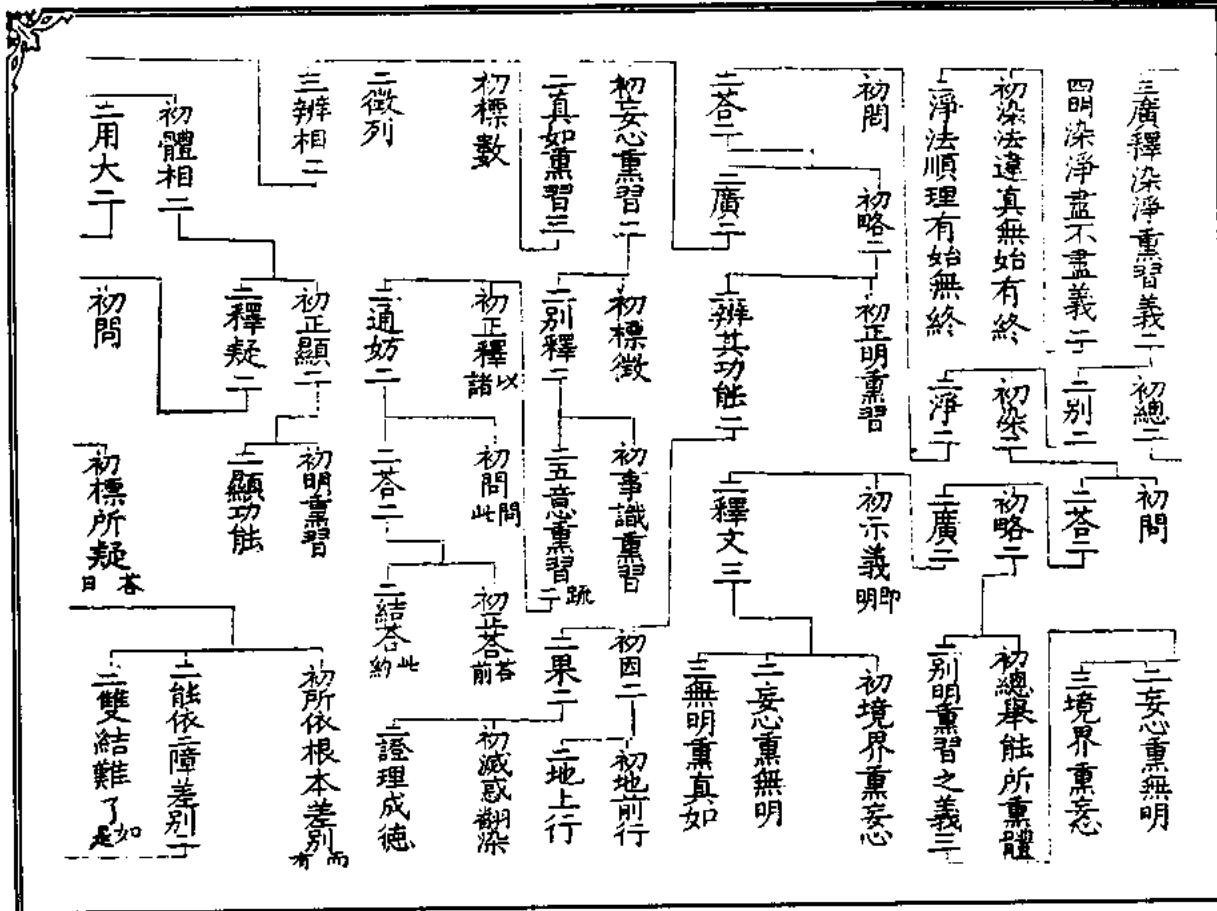 三廣釋染淨熏習義二
四明染淨盡不盡義二
初染法違真無始有終
二淨法順理有始無終
初問
二荅二
初妄心熏習二
二真如熏習三
初標數
二徵列
三辨相二
初體相二
二用大二
初總二
二別二
初染二
二淨二
初略二
二廣二
初正明熏習
二辨其功能二
初標徵
二別釋二
初正釋 以諸
二通妨二
初正顯二
二釋疑二
初問
初問
二荅二
初略二
二廣二
初示義 即明
二釋文三
初事識熏習
二五意熏習二 䟽
初問 問此
二荅二
初明熏習
二顯功能
初標所疑 荅曰
二妄心熏無明
三境界熏妄心
初總舉能所熏體
二別明熏習之義三
初境界熏妄心
二妄心熏無明
三無明熏真如
初因二
二果二
初正荅 荅前
二結荅 此約
初地前行
二地上行
初滅惑翻染
二證理成德
初所依根本差別 而有
二能依二障差別二
三雙結難了 如是